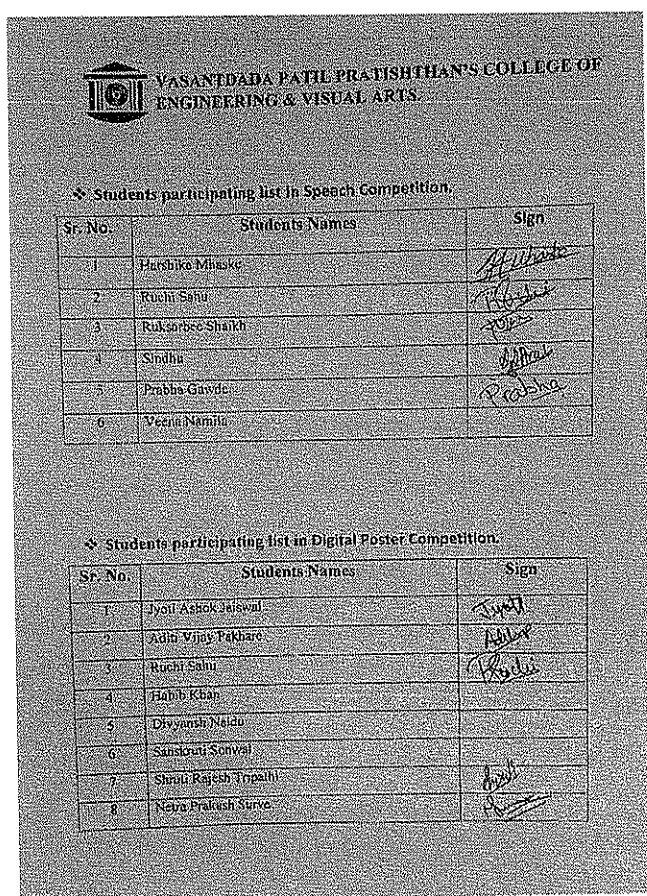 VASANTDADA PATIL PRATISHTHAN'S COLLEGE OF
ENGINEERING & VISUAL ARTS.
❖ Students participating list in Speech Competition.
Sr. No. Students Names Sign
1 Harshika Mhaske
2 Ruchi Sahu
3 Ruksarbee Shaikh
4 Sindhu
5 Prabha Gawde Prabha
6 Veena Namila
❖ Students participating list in Digital Poster Competition.
Sr. No. Students Names Sign
1 Jyoti Ashok Jaiswal Jyoti
2 Aditi Vijay Pakhare
3 Ruchi Sahu
4 Habib Khan
5 Divyansh Naidu
6 Sanskruti Sonwal
7 Shruti Rajesh Tripathi
8 Netra Prakash Surve